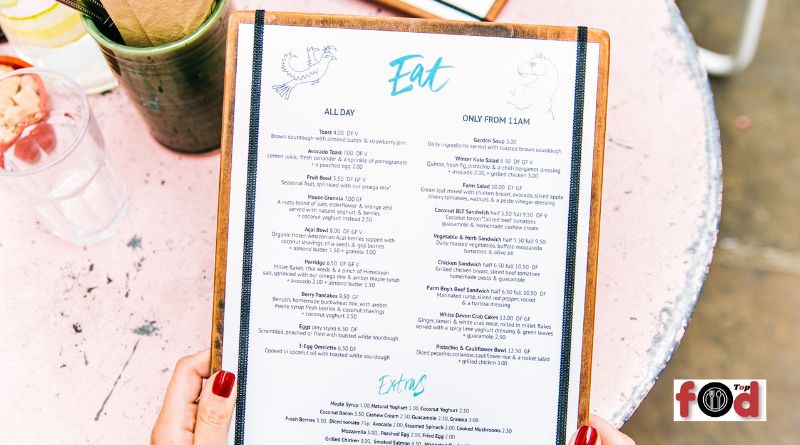 Eat
ALL DAY
Toast 4.00 DF V
Brown sourdough with almond butter & strawberry jam
Avocado Toast 7.00 DF V
Lemon juice, fresh coriander & a sprinkle of pomegranate
+ a poached egg 2.00
Fruit Bowl 5.50 DF GF V
Seasonal fruit, sprinkled with our omega mix
House Granola 7.00 GF
A nutty blend of oats, elderflower & orange zest
served with natural yoghurt & berries
+ coconut yoghurt instead 2.50
Açai Bowl 8.00 DF V
Organic frozen Amazonian Açai berries topped with
coconut shavings, chia seeds & goji berries
+ almond butter 1.50 + granola 3.00
Porridge 6.50 DF GF V
Millet flakes, chia seeds & a pinch of Himalayan
salt, sprinkled with our omega mix & amber maple syrup
+ avocado 2.00 + almond butter 1.50
Berry Pancakes 9.50 GF
homemade buckwheat mix, with amber
maple syrup fresh berries & coconut shavings
+ coconut yoghurt 2.50
Eggs (any style) 6.50 DF
Scrambled, poached or fried with toasted white sourdough
3-Egg Omelette 6.50 DF
Cooked in coconut oil with toasted white sourdough
ONLY FROM 11AM
Garden Soup 5.00
Daily ingredients served with toasted brown sourdough
Winter Kale Salad 8.50 DF V
Quinoa, fresh fig, pistachio & a chilli bergamot dressing
+ avocado 2.00, + grilled chicken 3.00
Farm Salad 10.00 DF GF
Green leaf mixed with chicken breast, avocado, sliced apple
cherry tomatoes, walnuts & a pesto vinegar dressing
Coconut BLT Sandwich half 5.50 full 9.50 DF V
Coconut bacon, sliced tomato,
guacamole & homemade cashew cream
Vegetable & Herb Sandwich half 5.50 full 9.50
Daily roasted vegetables, buffalo mozzarella
tomatoes & olive oil
Chicken Sandwich half 6.50 full 10.50 DF
Grilled chicken breast, sliced beef tomatoes
homemade pesto & guacamole
Farm Boy's Beef Sandwich half 6.50 full 10.50 DF
Marinated rump, sliced red pepper, rocket
& a harissa dressing
White Devon Crab Cakes 13.00 DF GF
Ginger, tamari & white crab meat, rolled in millet flakes
served with a spicy lime yoghurt dressing & green leaves
+ guacamole 2.50
Pistachio & Cauliflower Bowl 12.50 GF
Diced pecorino, coriander, cauliflower rice & a rocket salad
+ grilled chicken 3.00
Extras
Maple Syrup 1.00, Natural Yoghurt 1.00, Coconut Yoghurt 2.50
Coconut Bacon 3.50, Cashew Cream 2.00, Guacamole 2.50, Granola 3.00
Fresh Berries 3.50, Diced tomato 75p, Avocado 2.00, Steamed Spinach 2.00, Cooked Mushrooms 2.50
Mozzarella 3.00, Poached Egg 2.00, Fried Egg 2.00
Grilled Chicken 3.00, Smoked Salmon
Top
food